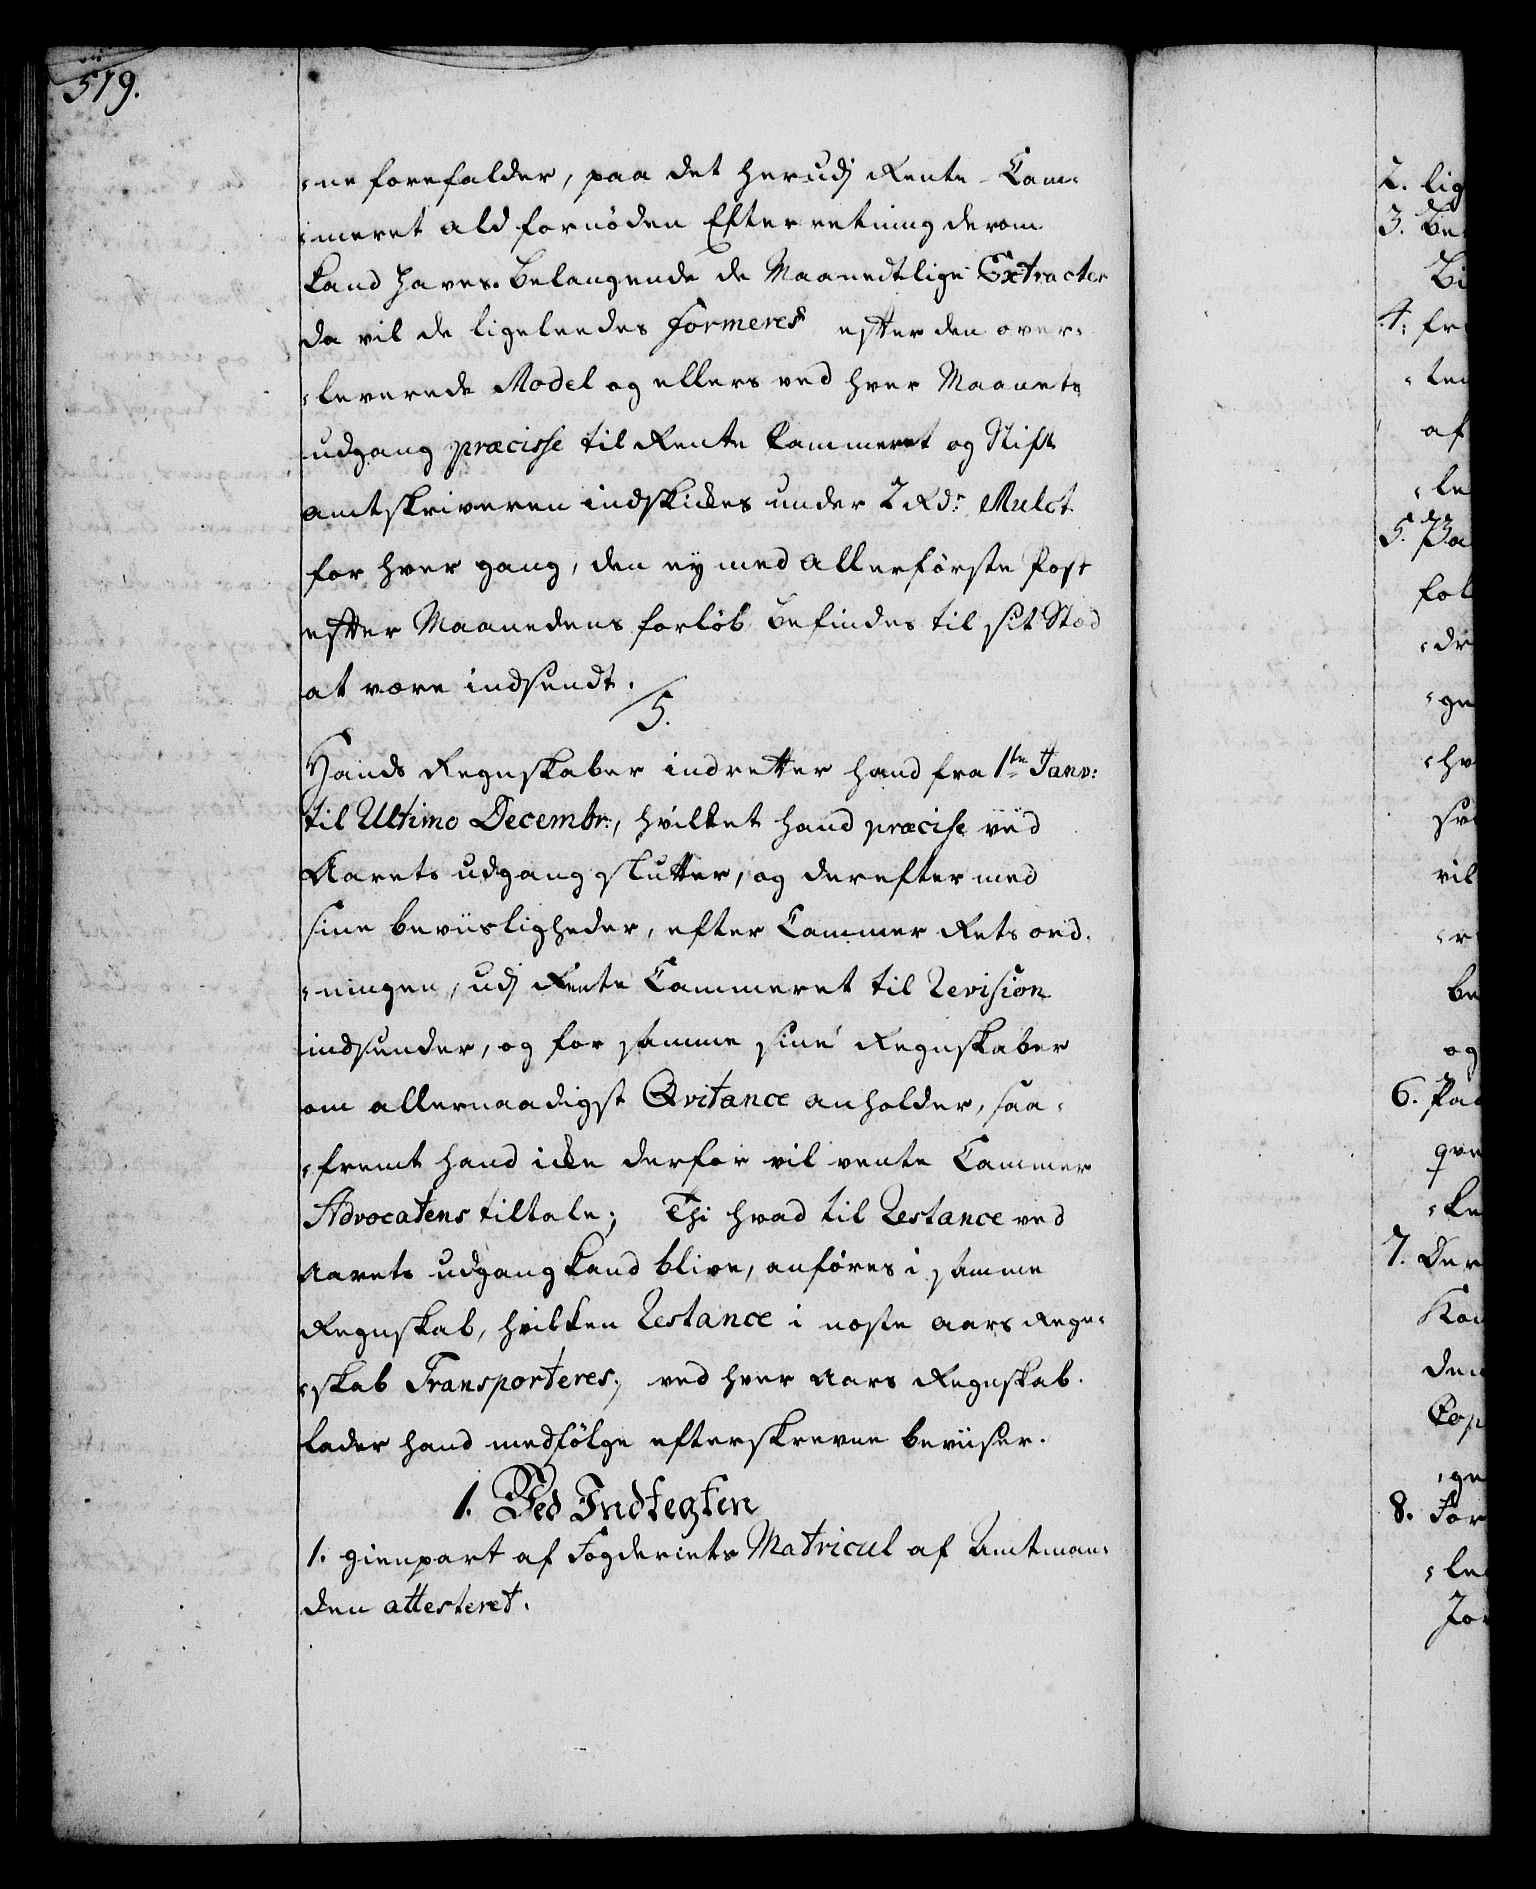 519.
-ne forefalder, paa det herudj Rente-Cam-
-meret ald fornöden Efterretning derom
kand haves. Belangende de Maanedtlige Extracter
da vil de ligeleedes formeres efter den over-
-leverede Model og ellers ved hver Maanets
udgang præcisse til Rente Cammeret og Stift
amtskriveren indskickes under 2 Rdr Mulct
for hver gang, den ey med allerförste Post
efter Maanedens forlöb befindes til sit Stæd
at være indsendt.
5.
Hands Regnskaber indretter hand fra 1te Janv:
til Ultimo Decembr:, hvilket hand præcise ved
Aarets udgang slutter, og derefter med
sine beviisligheder, efter Cammer Rets ord-
-ningen, udj Rente Cammeret til Revision
indsender, og for samme sine Regnskaber
om allernaadigst Qvitance anholder, saa-
-fremt hand icke derfor vil vente Cammer
Advocatens tiltale; Thi hvad til Restance ved
Aarets udgang kand blive, anföres i samme
Regnskab, hvilken Restance i næste Aars Regn-
-skab Transporteres; ved hver Aars Regnskab
lader hand medfölge efterskrevne beviiser.
1. Ved Indtegten
1. gienpart af Fogderiets Matricul af Amtman-
den attesteret.
2. lig
3. Be
Bi
4. fr
-ten
af
-le
5. Paa
fol
-dr
-ge
-hv
vil
-r
be
og
6. Paa
qve
-ke
7. Der
den
Cop
-ge
8. For
-le
Jor